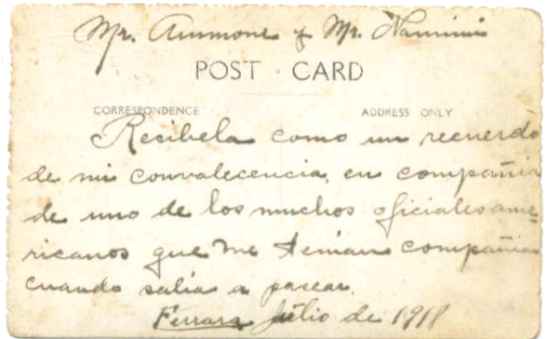 Mr. Ammone y Mr. Naminis
POST CARD
CORRESPONDENCE ADDRESS ONLY
Recibela como un recuerdo
de mi convalecencia, en compañia
de uno de los muchos oficiales ame
ricanos que me tenian compañia
cuando salia a pasear.
Ferrara Julio de 1918